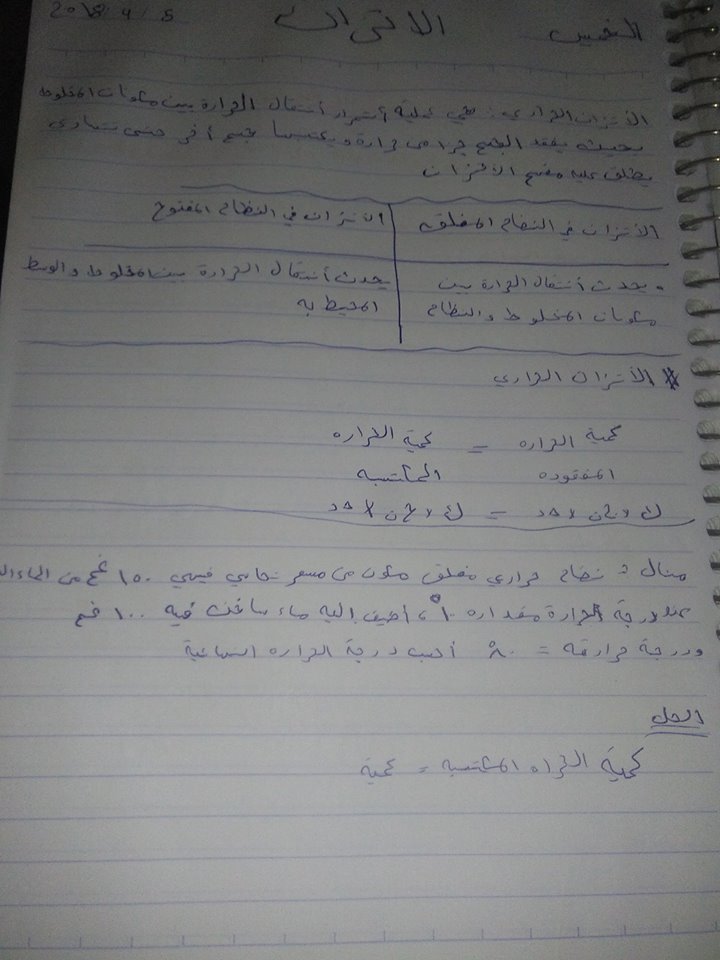 الخميس الاتزان 2018/4/5
الأتزان الحراري : هي عملية أستمرار أنتقال الحرارة بين مكونات المخلوط
بحيث يفقد الجسم حرارة ويكتسبها جسم أخر حتى تتساوى
يطلق عليه الاتزان
الأتزان في النظام المغلق
الاتزان في النظام المفتوح
يحدث أنتقال الحرارة بين
مكونات المخلوط والنظام
يحدث أنتقال الحرارة بين المخلوط والوسط
المحيط به
# الأتزان الحراري
كمية الحراره = كمية الحراره
المفقوده المكتسبه
ك × ∆ن × حد = ك × ∆ن × حد
مثال : نظام حراري مغلق مكون من مسعر نحاسي فيه ١٥٠ غم من الماء
درجة الحرارة مقداره أضيف إليه ماء ساخن فيه ١٠٠ غم
ودرجة حرارته = ٨٠ أحسب درجة الحراره النهائية
الحل
كمية الحراره المكتسبه = كمية